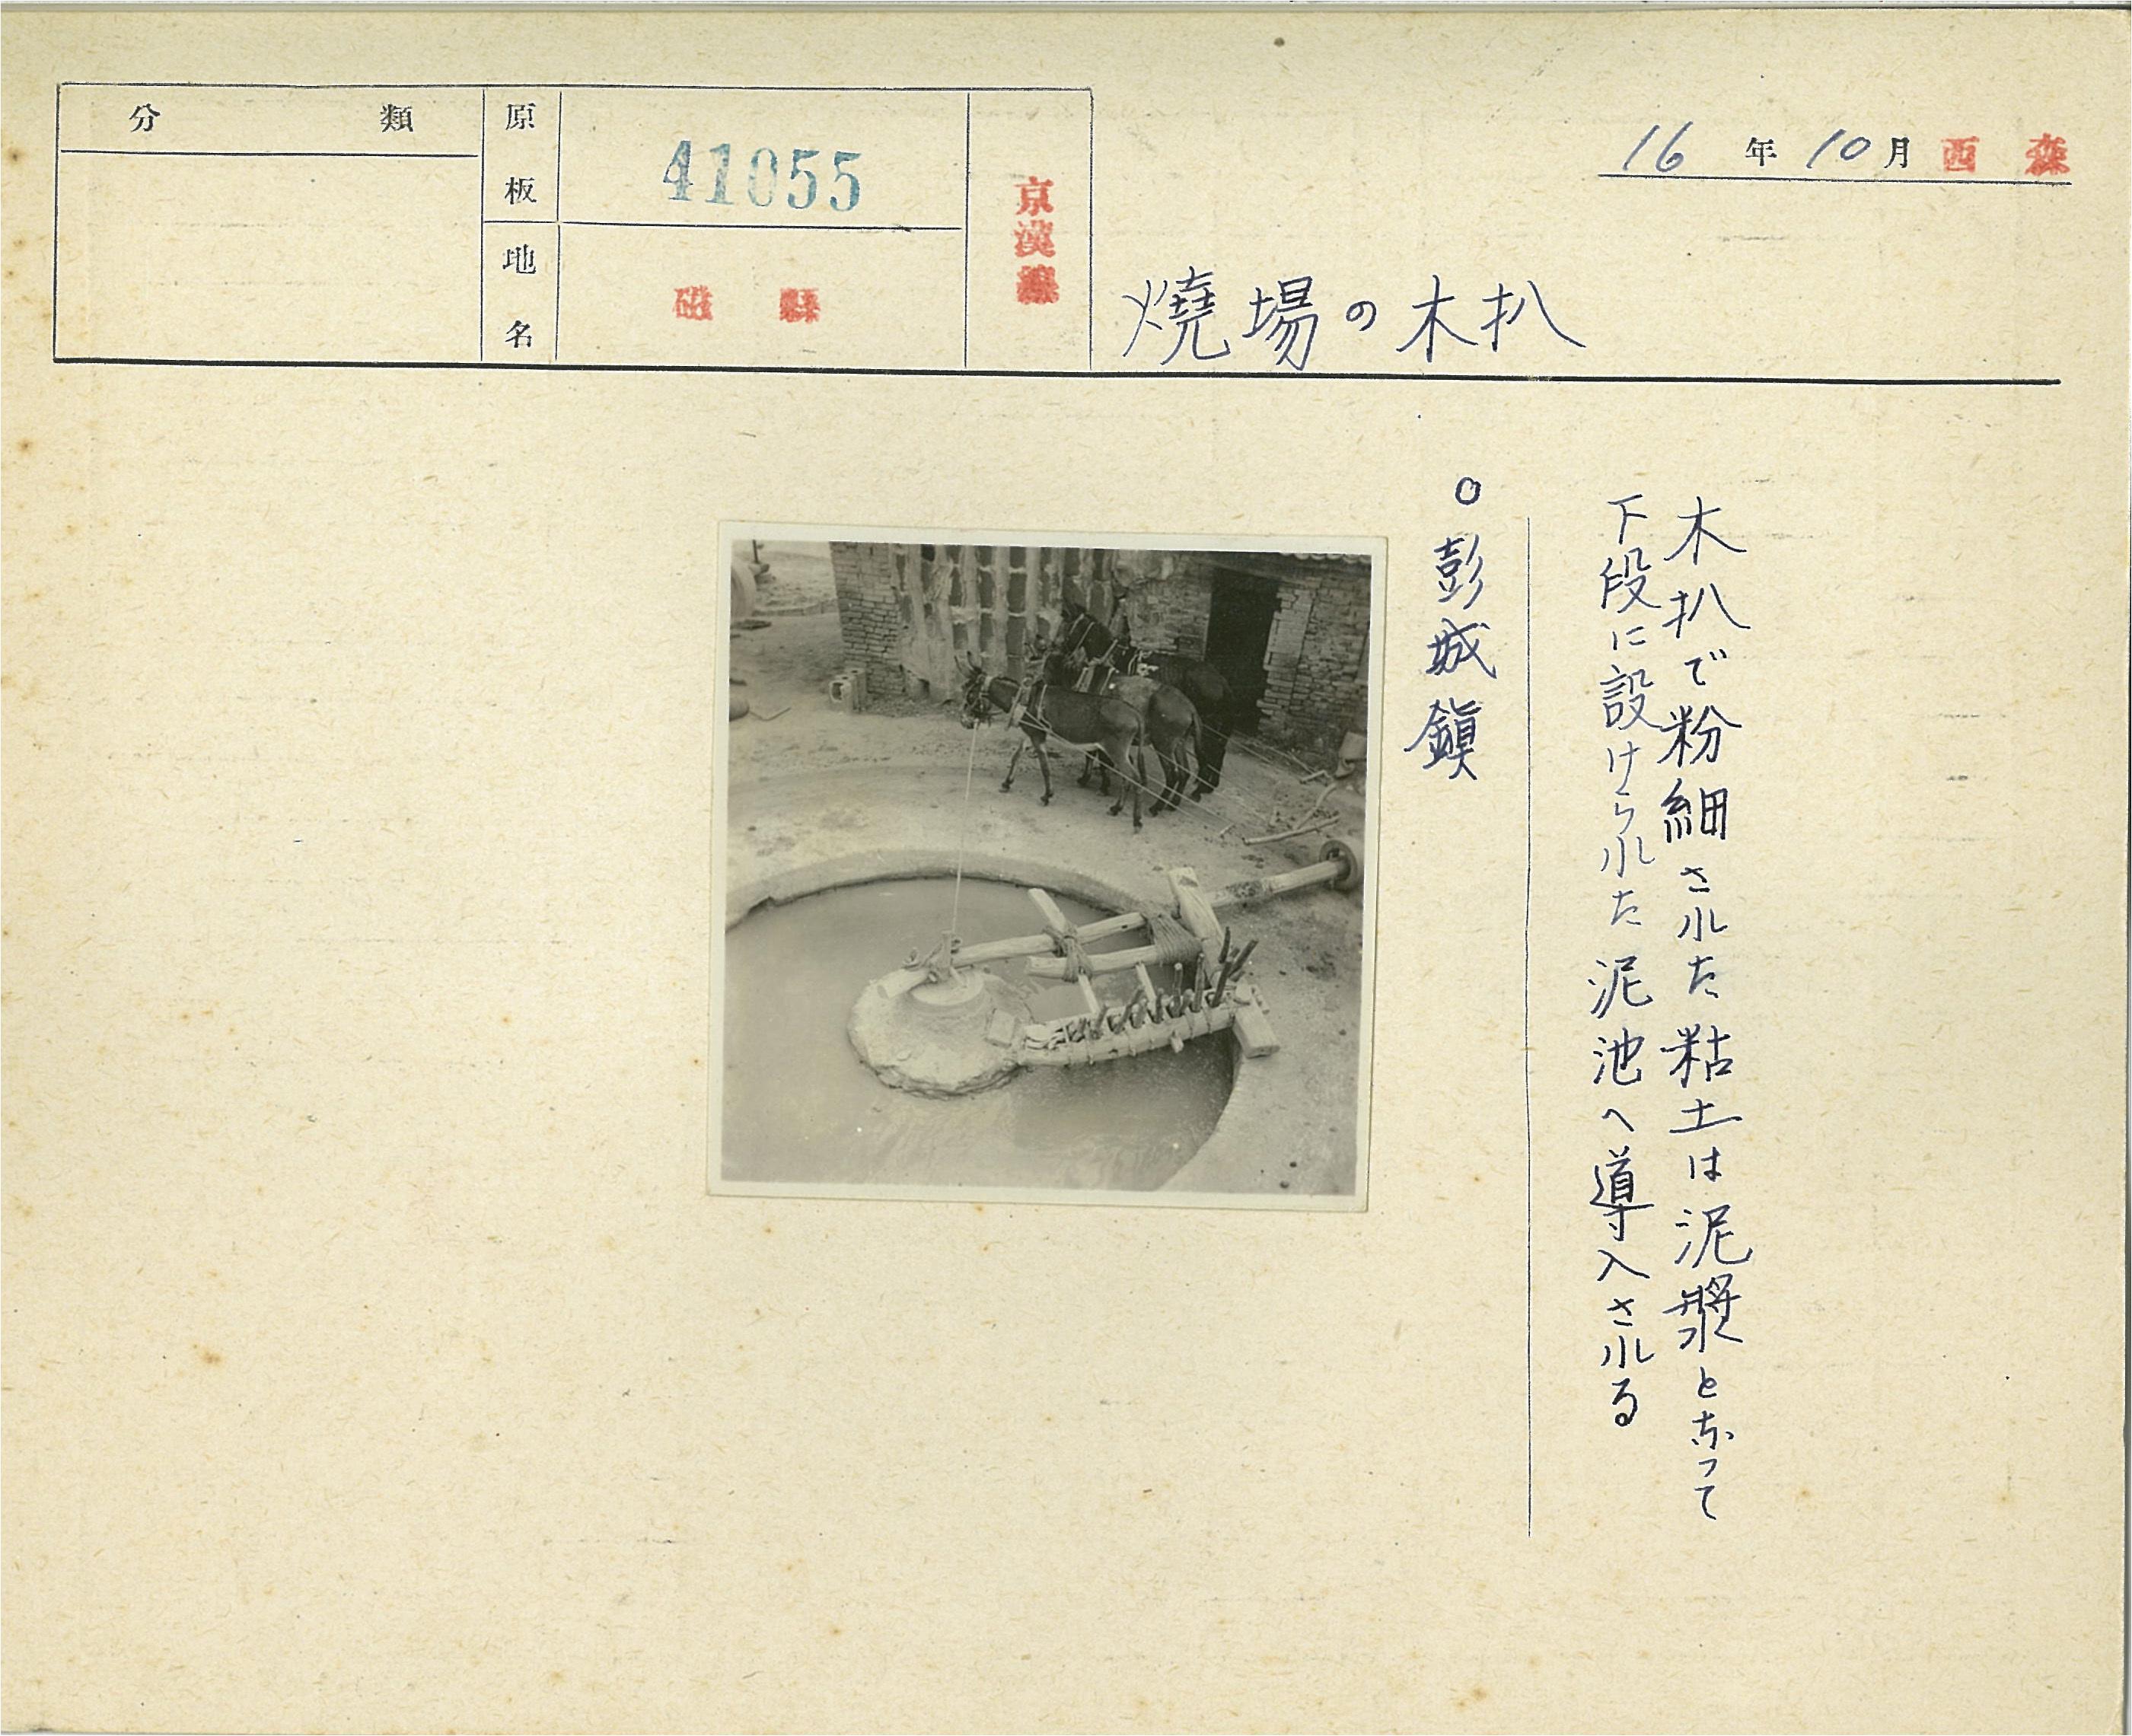 分類
原板
41055
地名
磁縣
京漢線
16年10月 西森
燒場の木扒
木扒で粉細された粘土は泥漿となって
下段に設けられた泥池へ導入される
○彭城鎭